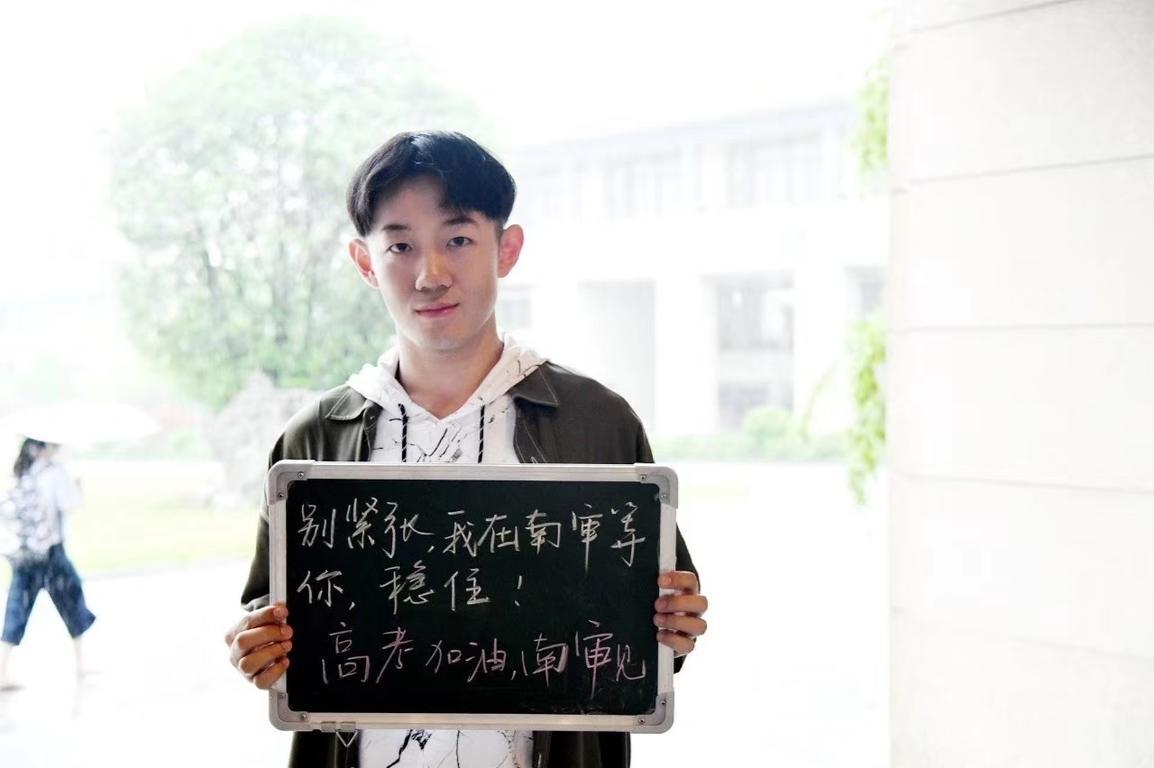 别紧张,我在南审等
你,稳住!
高考加油,南审见